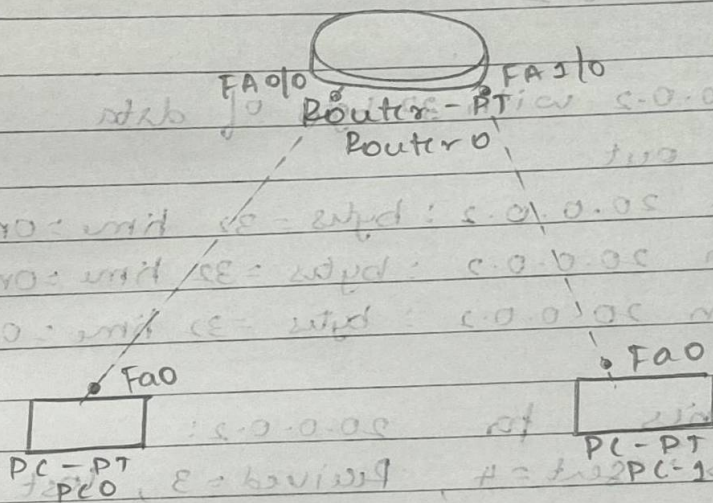 FA0/0
FA1/0
Router-PT
Router0
Fa0
Fa0
PC-PT
PC0
PC-PT
PC-1